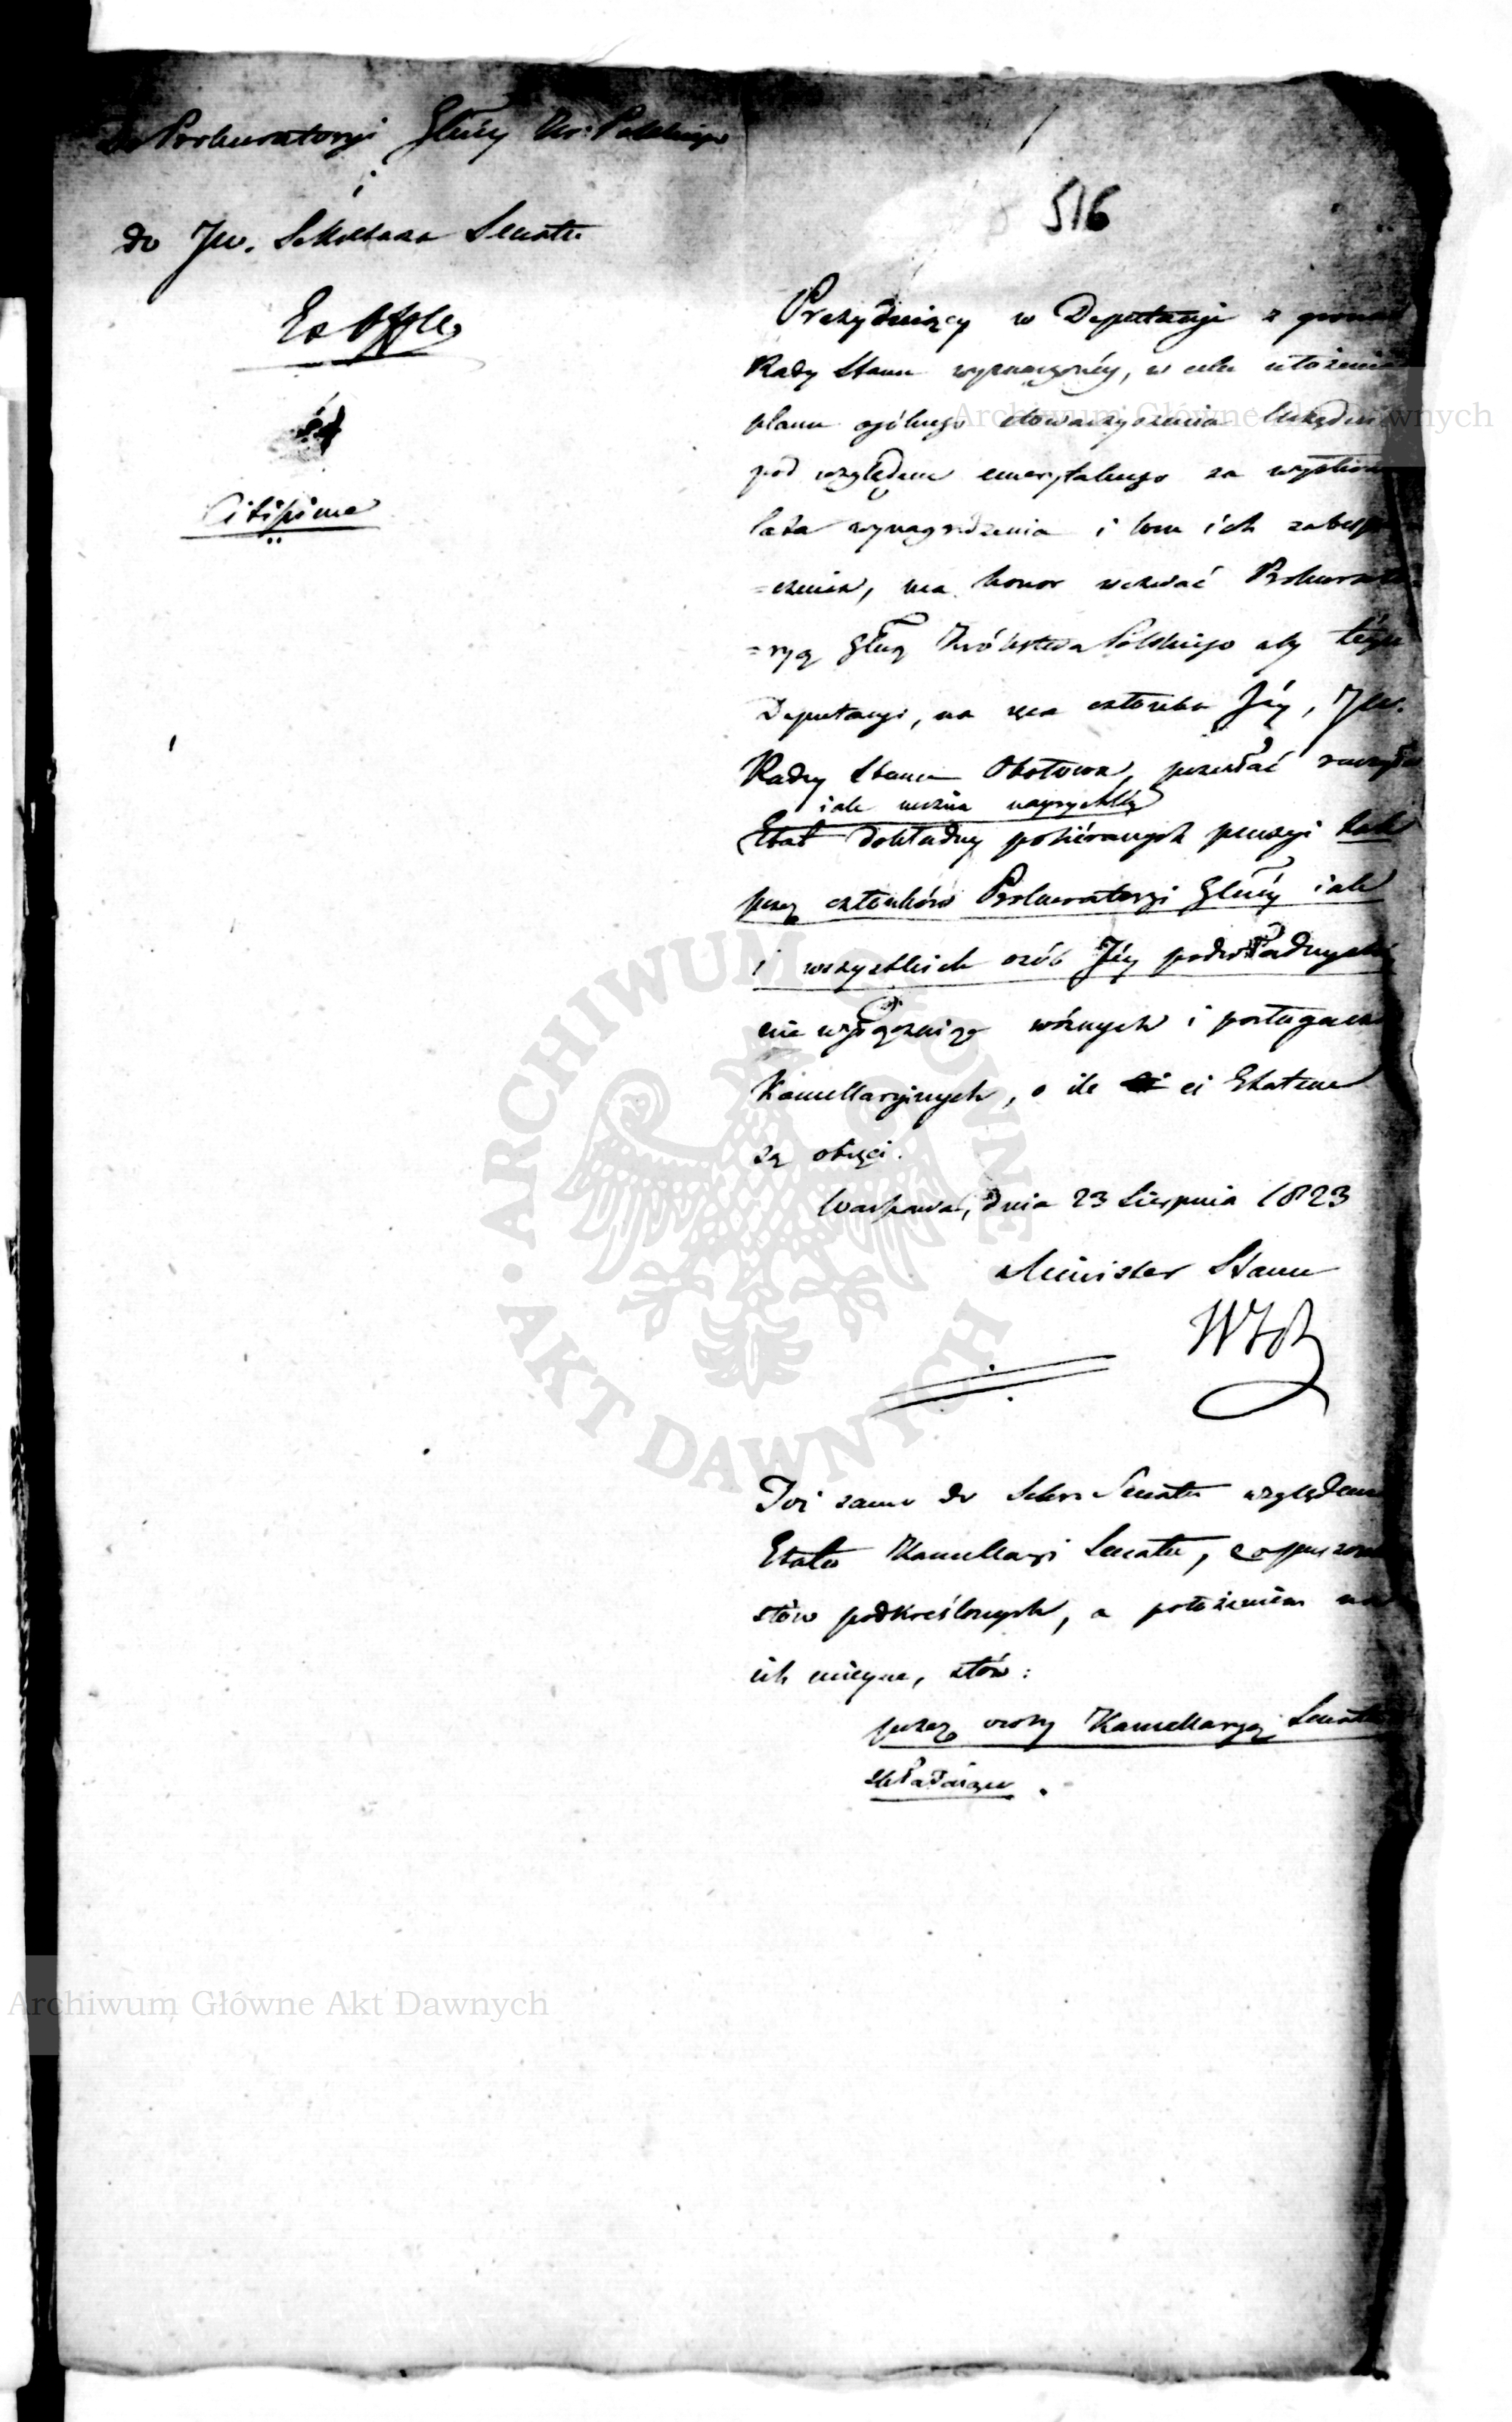 Do Prokuratoryi Głney Kr: Polskiego
i
do JW. Sekretarza Senatu
Ex Offo
Citissime
516
Prezyduiący w Deputacyi z grona
Rady Stanu wyznaczonéy, w celu ułożenia
planu ogólnego stowarzyszenia Urzędni
pod względem emerytalnego za wysłużo
lata wynagrodzenia i losu ich zabespie
=czenia, ma honor wezwać Prokurato
=ryą Głną Królestwa Polskiego aby téyże
Deputacyi, na ręce członka Jéy, JW.
Radcy Stanu Okołowa, przesłać raczyła
iak można nayrychléy
Etat dokładny pobiéranych pensyi tak
przez członków Prokuratoryi Głnéy iak
i wszystkich osób Jéy podwładnych
nie wyiąwszy woźnych i posługaczy
Kancellaryinych, o ile ci Etatem
są obięci.
Warszawa, dnia 23 Sierpnia 1823
Minister Stanu
Toż samo do Sekr. Senatu względem
Etatu Kancellaryi Senatu, z opuszczeniem
słów podkreślonych, a położeniem na
ich mieysce, słów:
przez osoby Kancellaryą Senatu
składaiące.
Archiwum Główne Akt Dawnych
ARCHIWUM GŁÓWNE
AKT DAWNYCH
Archiwum Główne Akt Dawnych